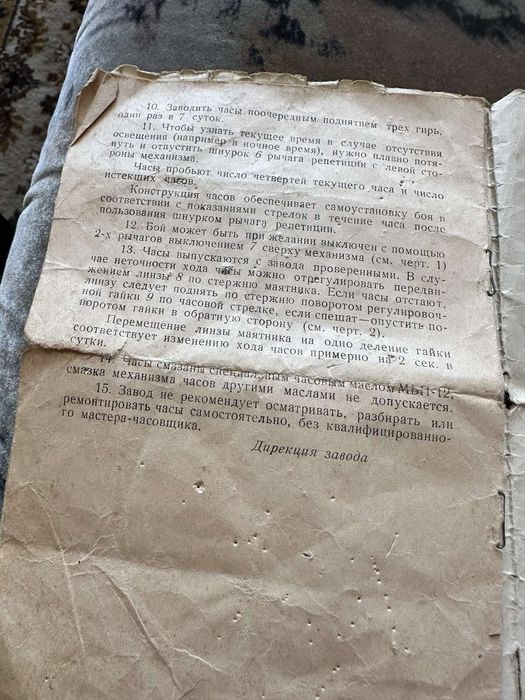 10. Заводить часы поочередным поднятием трех гирь,
один раз в 7 суток.
11. Чтобы узнать текущее время в случае отсутствия
освещения (например в ночное время), нужно плавно потя-
нуть и отпустить шнурок 6 рычага репетиции с левой сто-
роны механизма.
Часы пробьют число четвертей текущего часа и число
истекших часов.
Конструкция часов обеспечивает самоустановку боя в
соответствии с показаниями стрелок в течение часа после
пользования шнурком рычага репетиции.
12. Бой может быть при желании выключен с помощью
2-х рычагов выключением 7 сверху механизма (см. черт. 1)
13. Часы выпускаются с завода проверенными. В слу-
чае неточности хода часы можно отрегулировать передви-
жением линзы 8 по стержню маятника. Если часы отстают,
линзу следует поднять по стержню поворотом регулировоч-
ной гайки 9 по часовой стрелке, если спешат — опустить по-
воротом гайки в обратную сторону (см. черт. 2).
Перемещение линзы маятника на одно деление гайки
соответствует изменению хода часов примерно на 2 сек. в
сутки.
14. Часы смазаны специальным часовым маслом МБП-12,
смазка механизма часов другими маслами не допускается.
15. Завод не рекомендует осматривать, разбирать или
ремонтировать часы самостоятельно, без квалифицированно-
го мастера-часовщика.
Дирекция завода